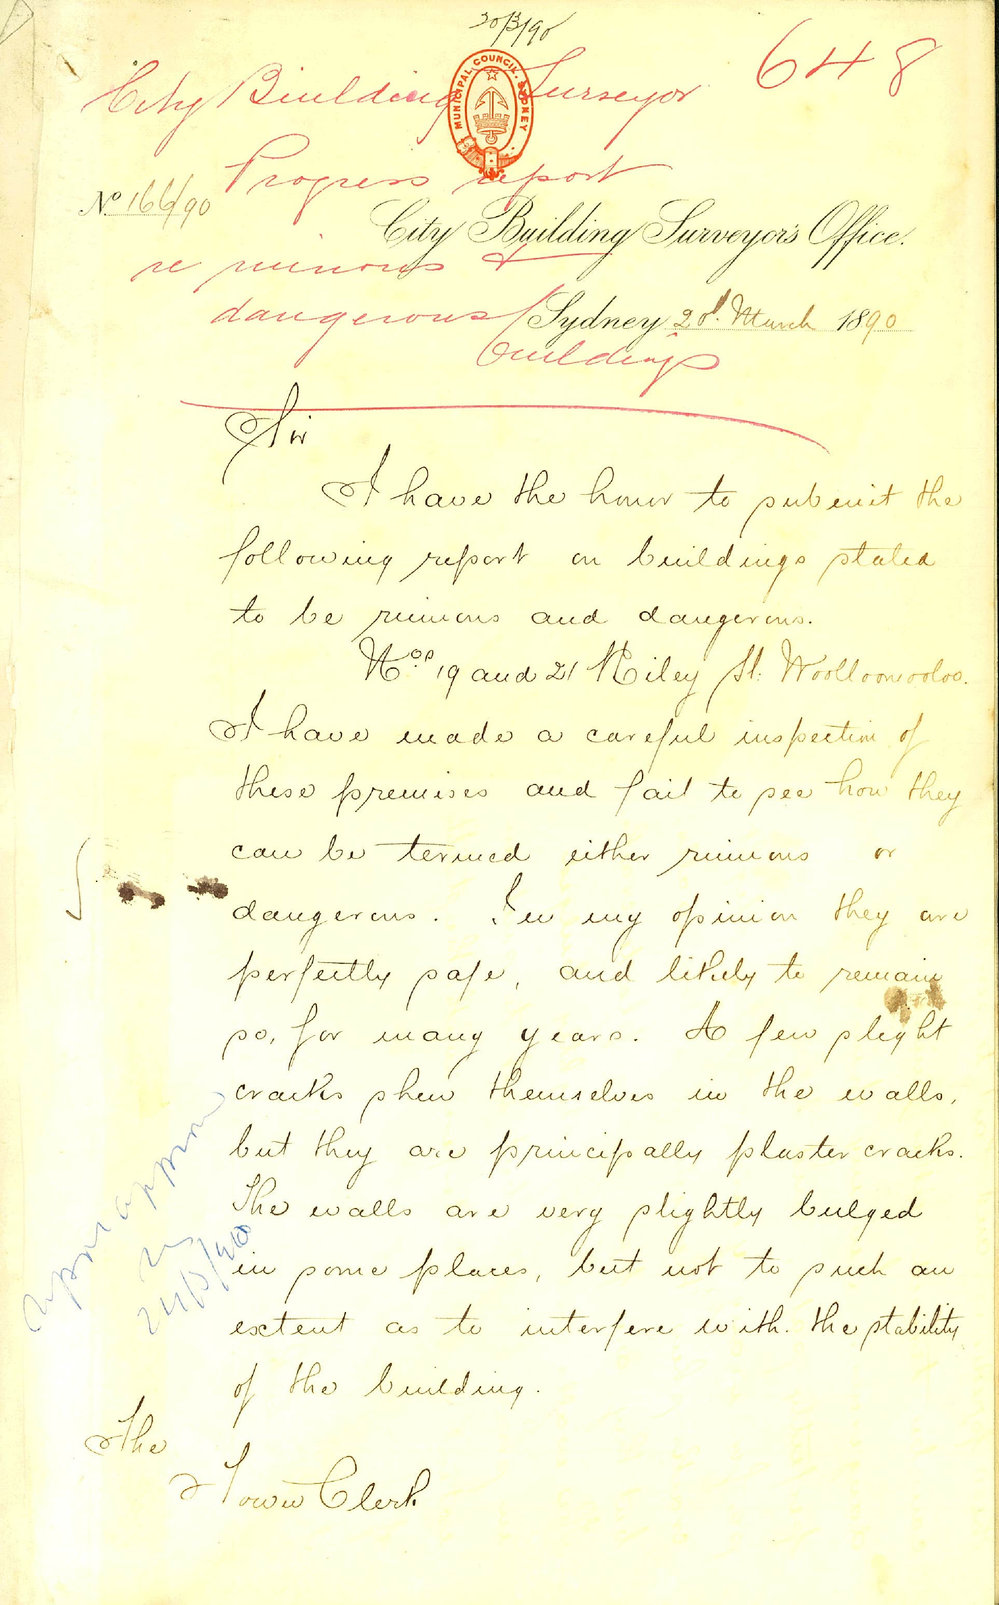 20/3/90
648
City Building Surveyor
MUNICIPAL COUNCIL. SYDNEY
Progress report
No 166/90
City Building Surveyor's Office.
re ruinous &
dangerous
Sydney 20. March 1890
buildings
Sir
I have the honor to submit the
following report on buildings stated
to be ruinous and dangerous.
Nos 19 and 21 Riley St: Woolloomooloo.
I have made a careful inspection of
these premises and fail to see how they
can be termed either ruinous or
dangerous. In my opinion they are
perfectly safe, and likely to remain
so, for many years. A few slight
cracks shew themselves in the walls,
but they are principally plaster cracks.
The walls are very slightly bulged
in some places, but not to such an
extent as to interfere with. the stability
of the building.
The
Town Clerk